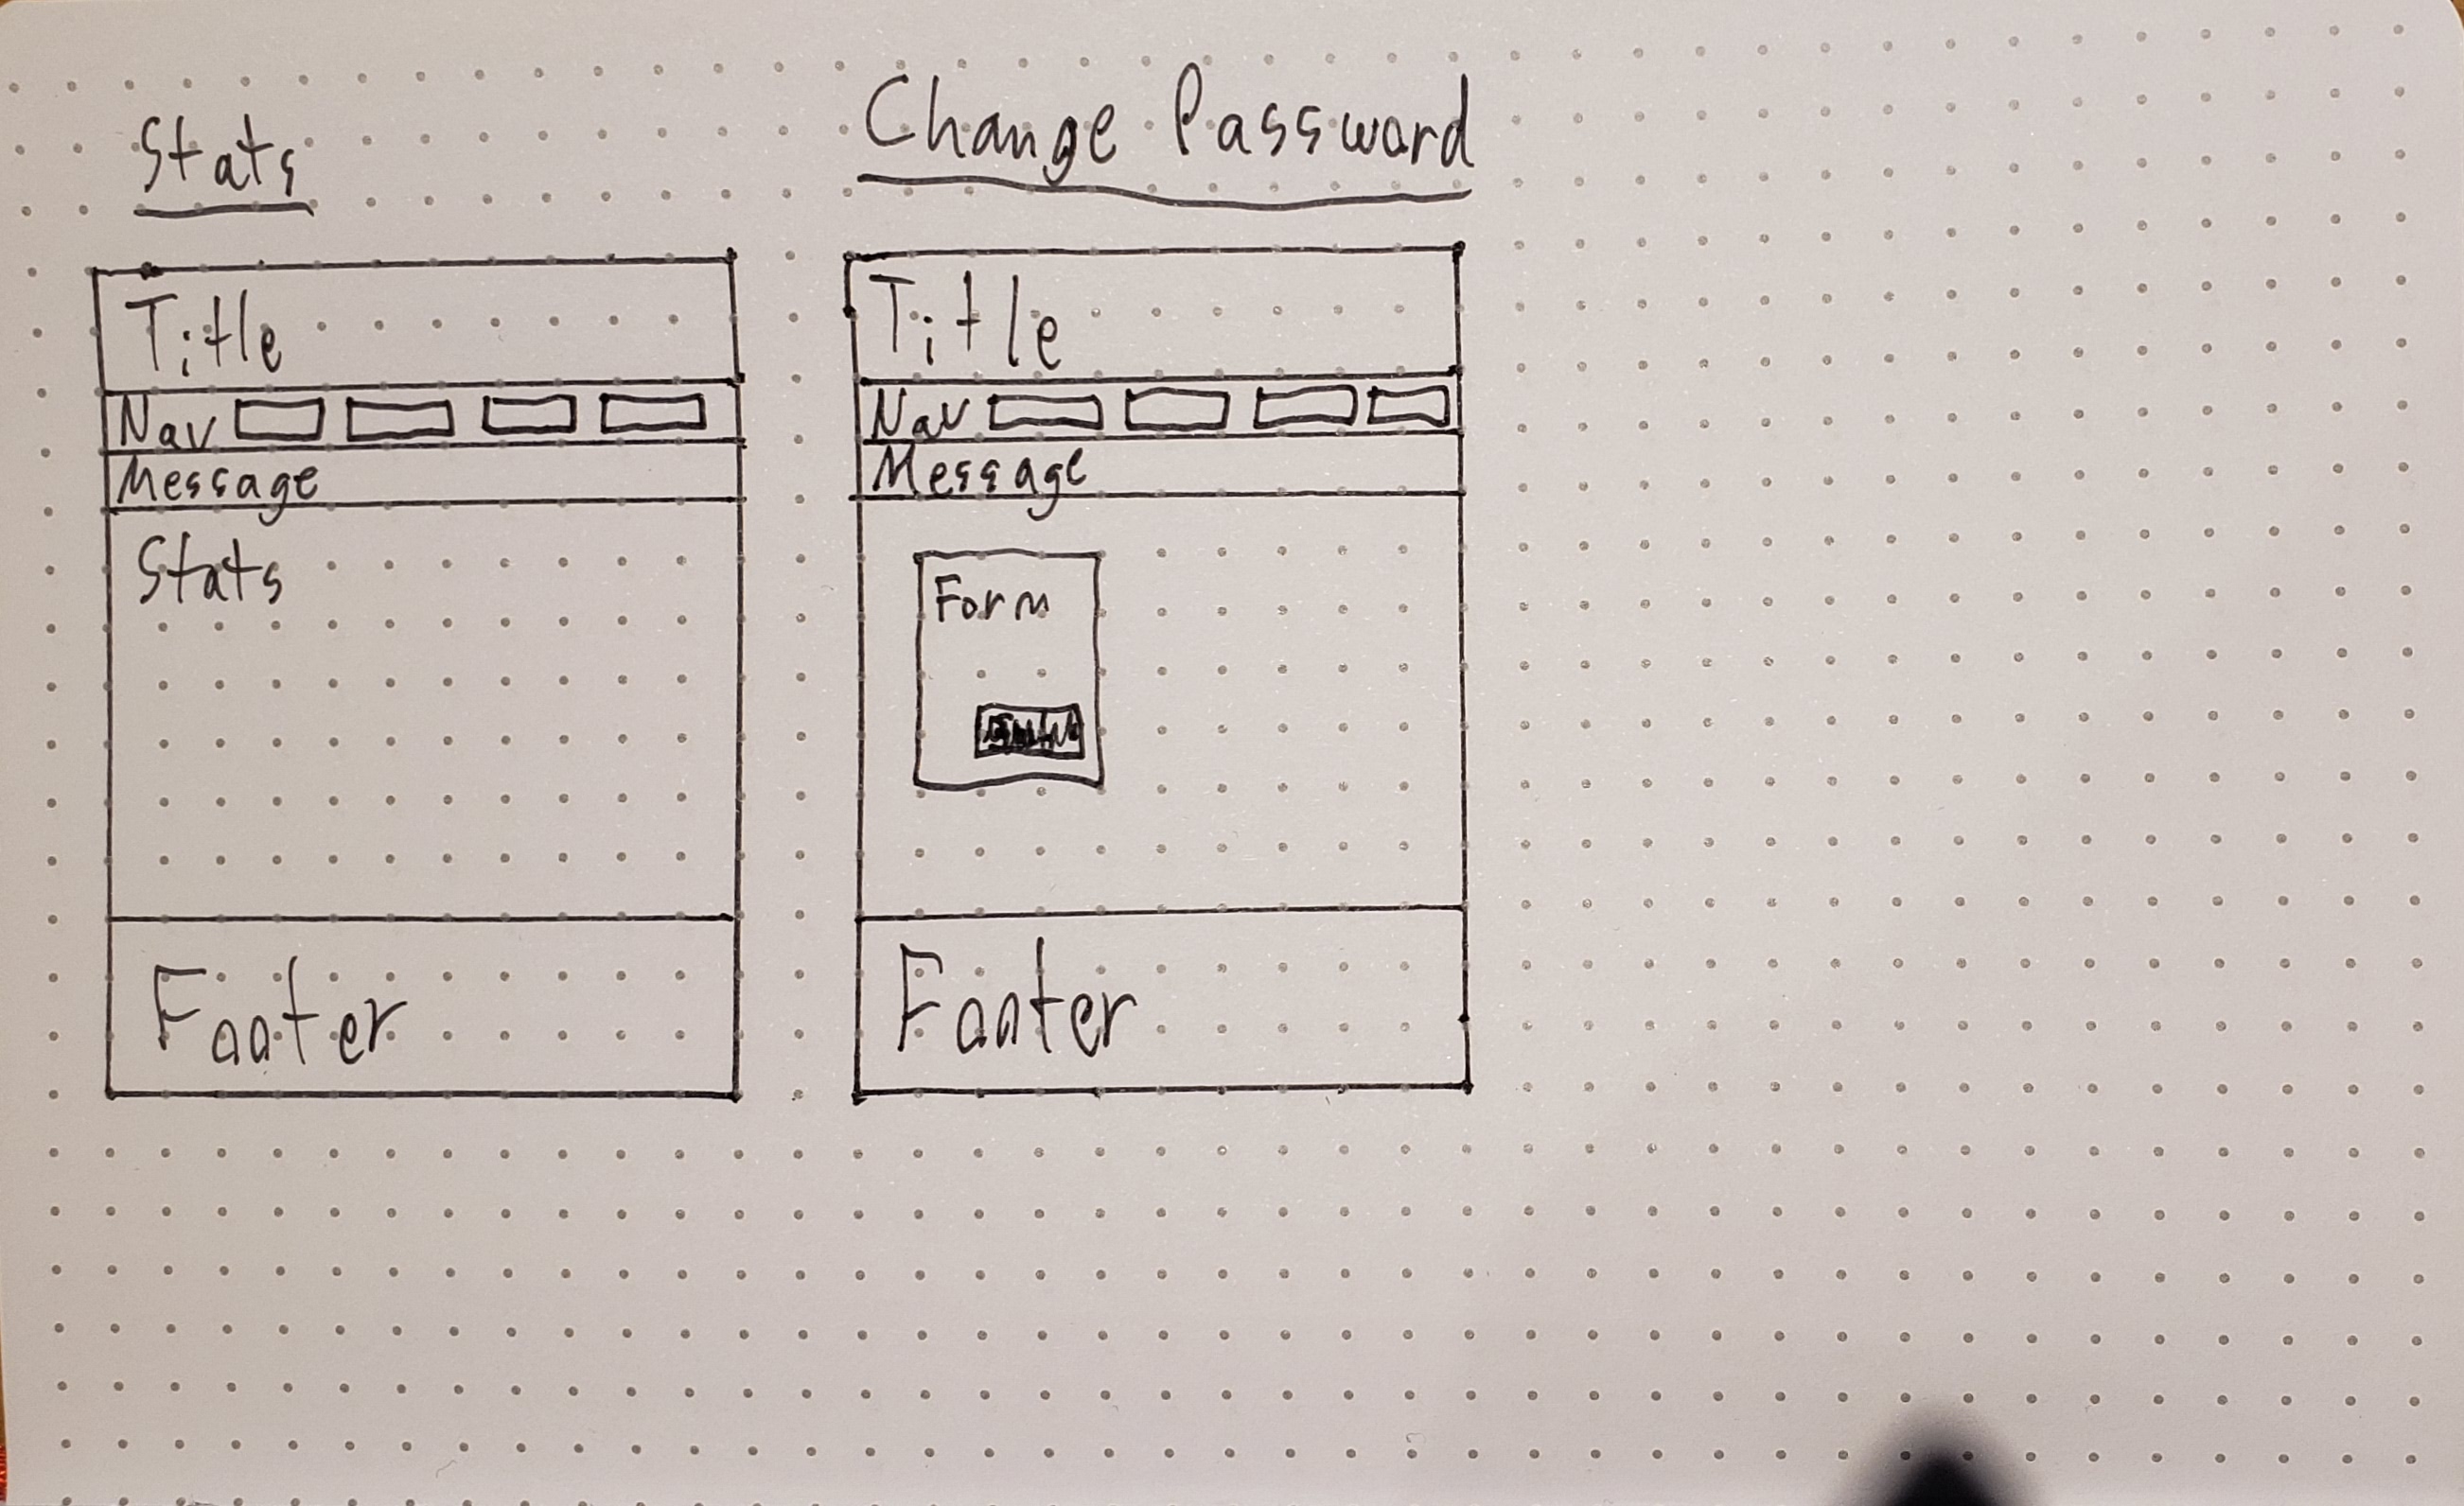 Stats
Title
Nav
Message
Stats
Footer
Change Password
Title
Nav
Message
Form
Footer